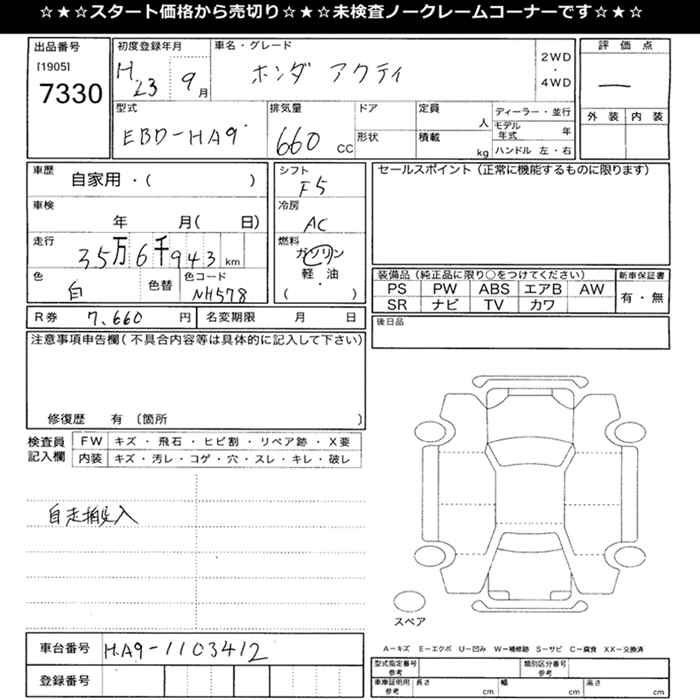 ☆★☆★スタート価格から売切り☆★☆★未検査ノークレームコーナーです☆★☆
出品番号 初度登録年月 車名・グレード 評価点
[1905] H.23 9月 ホンダ アクティ 2WD
7330 ・ ―
4WD
型式 排気量 ドア 定員 ディーラー・並行 外装 内装
EBD-HA9 660 CC 形状 人 モデル年式 年
積載 kg ハンドル 左・右
車歴 自家用・( ) シフト F5 セールスポイント(正常に機能するものに限ります)
車検 年 月( 日) 冷房 AC
走行 35万6千943 km 燃料 ガソリン
軽・油
・
( )
色 白 色替 色コード NH578
装備品(純正品に限り○をつけてください) 新車保証書
PS PW ABS エアB AW 有・無
SR ナビ TV カワ
R券 7,660 円 名変期限 月 日 後日品
注意事項申告欄(不具合内容等は具体的に記入して下さい)
修復歴 有 〔箇所 〕
検査員 FW キズ・飛石・ヒビ割・リペア跡・X要
記入欄 内装 キズ・汚レ・コゲ・穴・スレ・キレ・破レ
自走搬入
スペア
車台番号 HA9-1103412
登録番号
A−キズ E−エクボ U−凹み W−補修跡 S−サビ C−腐食 XX−交換済
型式指定番号 参考 類別区分番号 参考
車庫証明用 参考 長さ cm 幅 cm 高さ cm